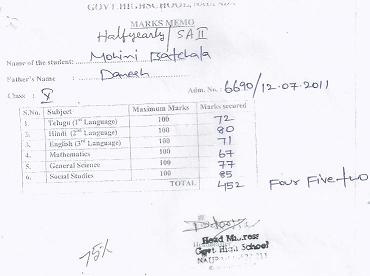 GOVT HIGH SCHOOL,
MARKS MEMO
Halfyearly/SA II
Name of the student: Mohini Batchala
Father's Name : Danesh
Class : 8 Adm. No.: 6690/12-07-2011
S.No. Subject Maximum Marks Marks secured
1. Telugu (1st Language) 100 72
2. Hindi (2nd Language) 100 80
3. English (3rd Language) 100 71
4. Mathematics 100 67
5. General Science 100 77
6. Social Studies 100 85
TOTAL 452 Four Five two
Head
Govt High School
75%